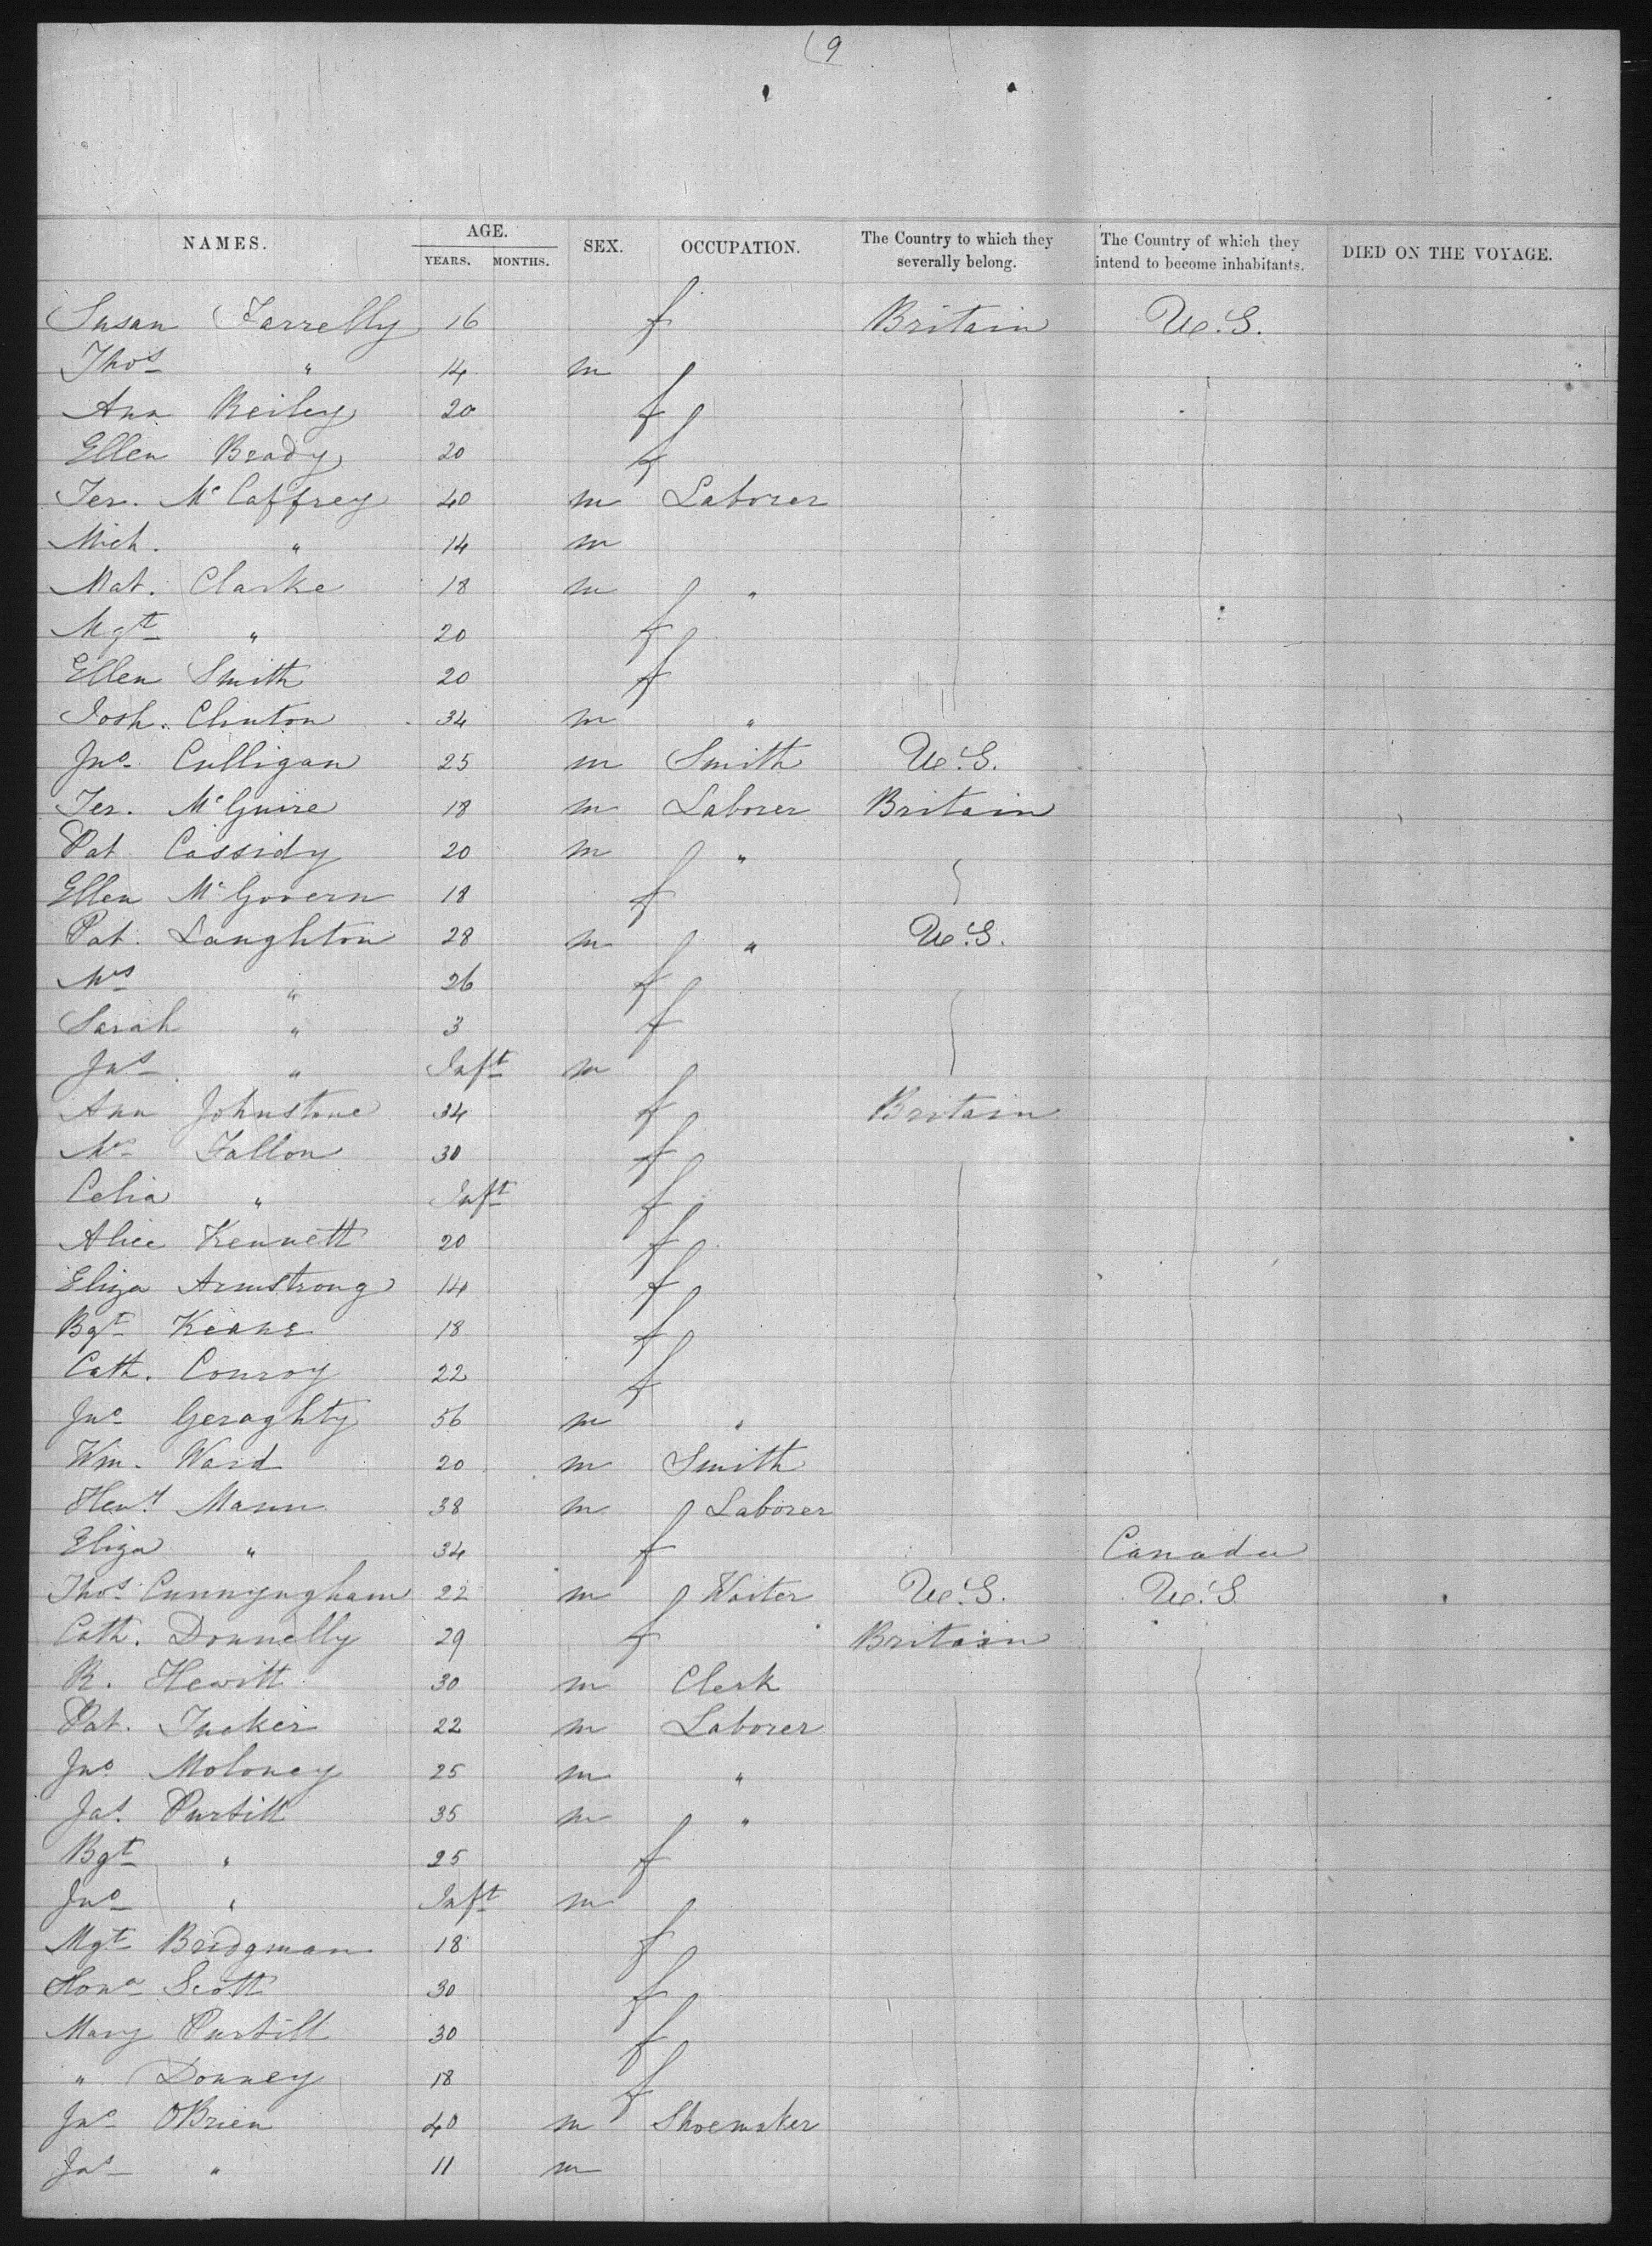 9
NAMES. AGE. YEARS. MONTHS. SEX. OCCUPATION. The Country to which they severally belong. The Country of which they intend to become inhabitants. DIED ON THE VOYAGE.
Susan Farrelly 16 f Britain U.S.
Thos " 14 m
Ann Reiley 20 f
Ellen Brady 20 f
Ter. McCaffrey 40 m Laborer
Mich. " 14 m
Mat. Clarke 18 m "
Mgt " 20 f
Ellen Smith 20 f
Josh. Clinton 34 m "
Jno Culligan 25 m Smith U.S.
Ter. McGuire 18 m Laborer Britain
Pat Cassidy 20 m "
Ellen McGovern 18 f
Pat. Langhton 28 m " U.S.
Mrs " 26 f
Sarah " 3 f
Jas " Inft m
Ann Johnstone 34 f Britain
Mrs Fallon 30 f
Celia " Inft f
Alice Kennett 20 f
Eliza Armstrong 14 f
Bgt Keane 18 f
Cath. Conroy 22 f
Jno Geraghty 56 m "
Wm. Ward 20 m Smith
Heny Mann 38 m Laborer
Eliza " 34 f Canada
Thos Cunnyngham 22 m Waiter U.S. U.S.
Cath. Donnelly 29 f Britain
R. Hewitt 30 m Clerk
Pat. Tucker 22 m Laborer
Jno Moloney 25 m "
Jas. Purtill 35 m "
Bgt " 25 f
Jno " Inft m
Mgt Bridgman 18 f
Hona Scott 30 f
Mary Purtill 30 f
" Donney 18 f
Jno OBrien 40 m Shoemaker
Jas " 11 m